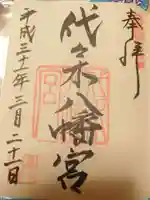 奉拝
代々木八幡宮
平成三十一年三月二十一日